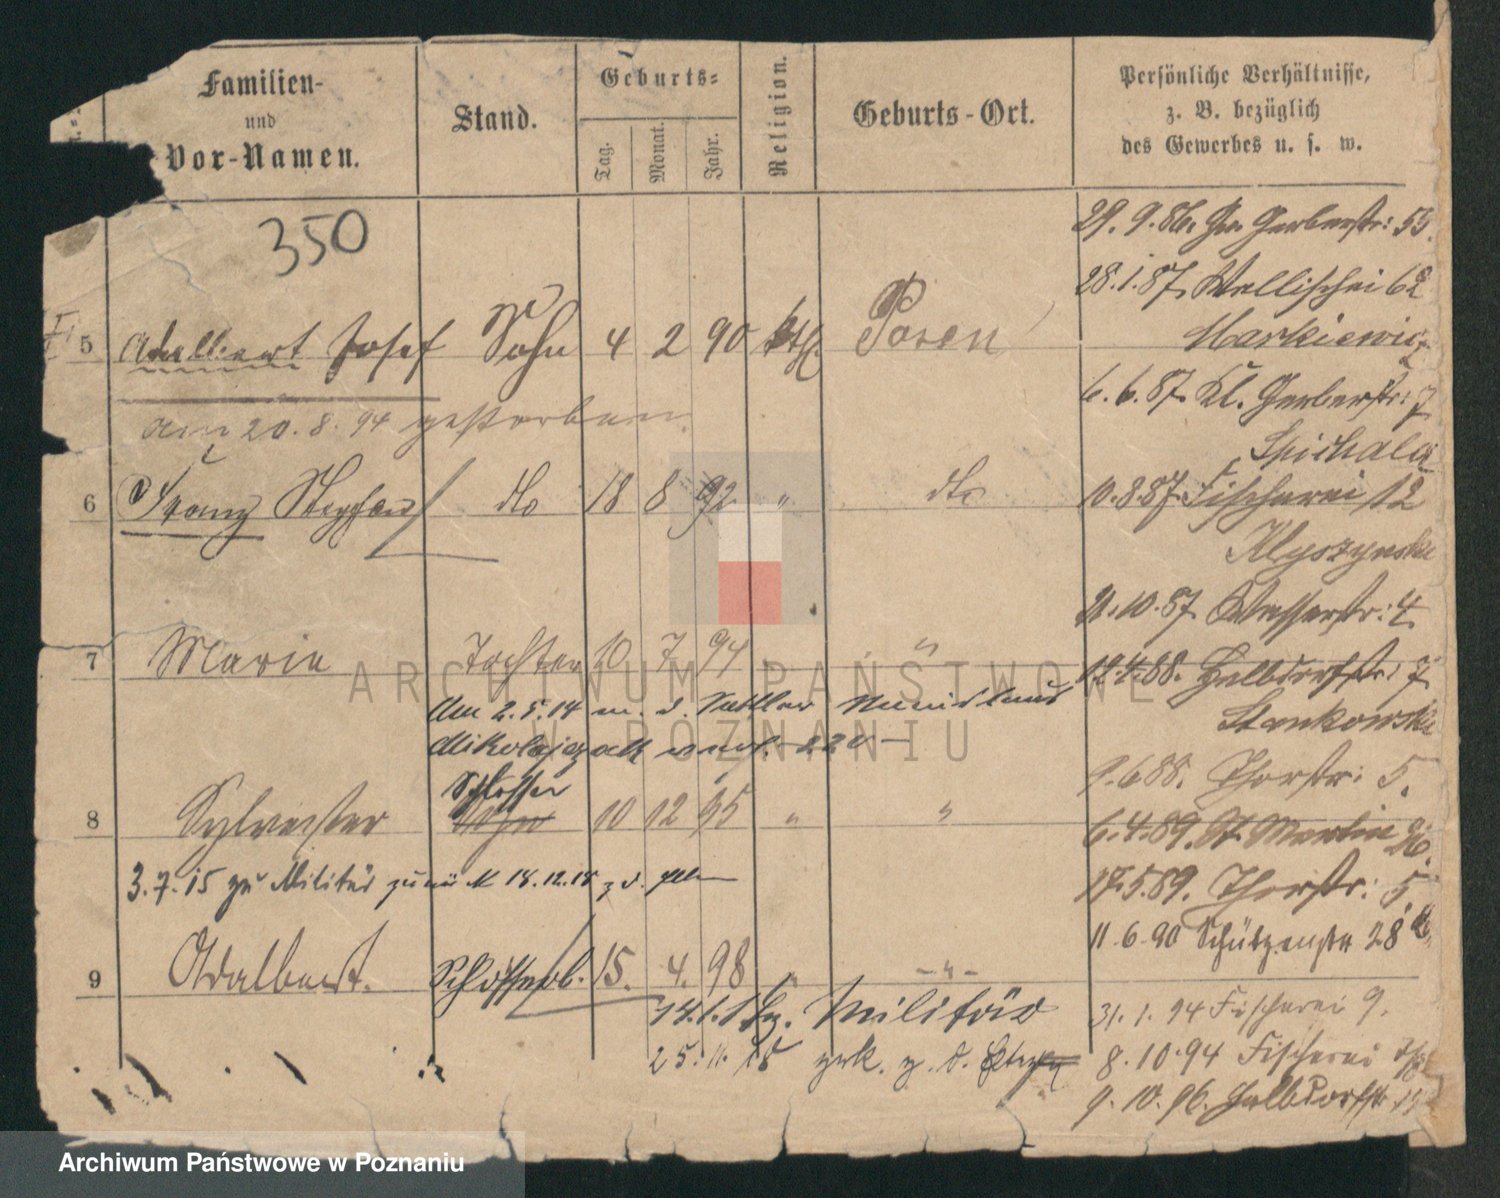 Familien-
und
Vor-Namen.
Stand.
Geburts-
Tag.
Monat.
Jahr.
Religion.
Geburts-Ort.
Persönliche Verhältnisse,
z. B. bezüglich
des Gewerbes u. s. w.
350
29. 9. 86. Gr. Gerberstr: 55.
28. 1. 87. Wallischei 62
Markiewicz
5 Adalbert Josef Sohn 4 2 90 kth. Posen
6. 6. 87. Kl. Gerberstr: 7
am 20. 8. 94 gestorben.
Spichala
6 Franz Stephan dto 18 8 92 " dto
10. 8. 87. Fischerei 12
21. 10. 87. Wasserstr: 4.
7 Marie Tochter 20 7 94 "
19. 4. 88. Halbdorfstr: 7
Am 2. 5. 14 m. d. Sattler
Stankowski
Mikolajczak 220
9. 6. 88. Thorstr: 5.
Schlosser
8 Sylvester Sohn 10 12 95 " "
6. 4. 89. St. Martin 26.
3. 7. 15 zu Militär 18. 12. 18 z. d.
17. 5. 89. Thorstr: 5.
11. 6. 90 Schützenstr 28
9 Adalbert. Schlosserl. 15. 4. 98 " - " -
Militär
31. 1. 94 Fischerei 9.
25. 11. 18 zrk. z. d.
8. 10. 94 Fischerei
9. 10. 96. Halbdorfstr
ARCHIWUM PAŃSTWOWE
W POZNANIU
Archiwum Państwowe w Poznaniu